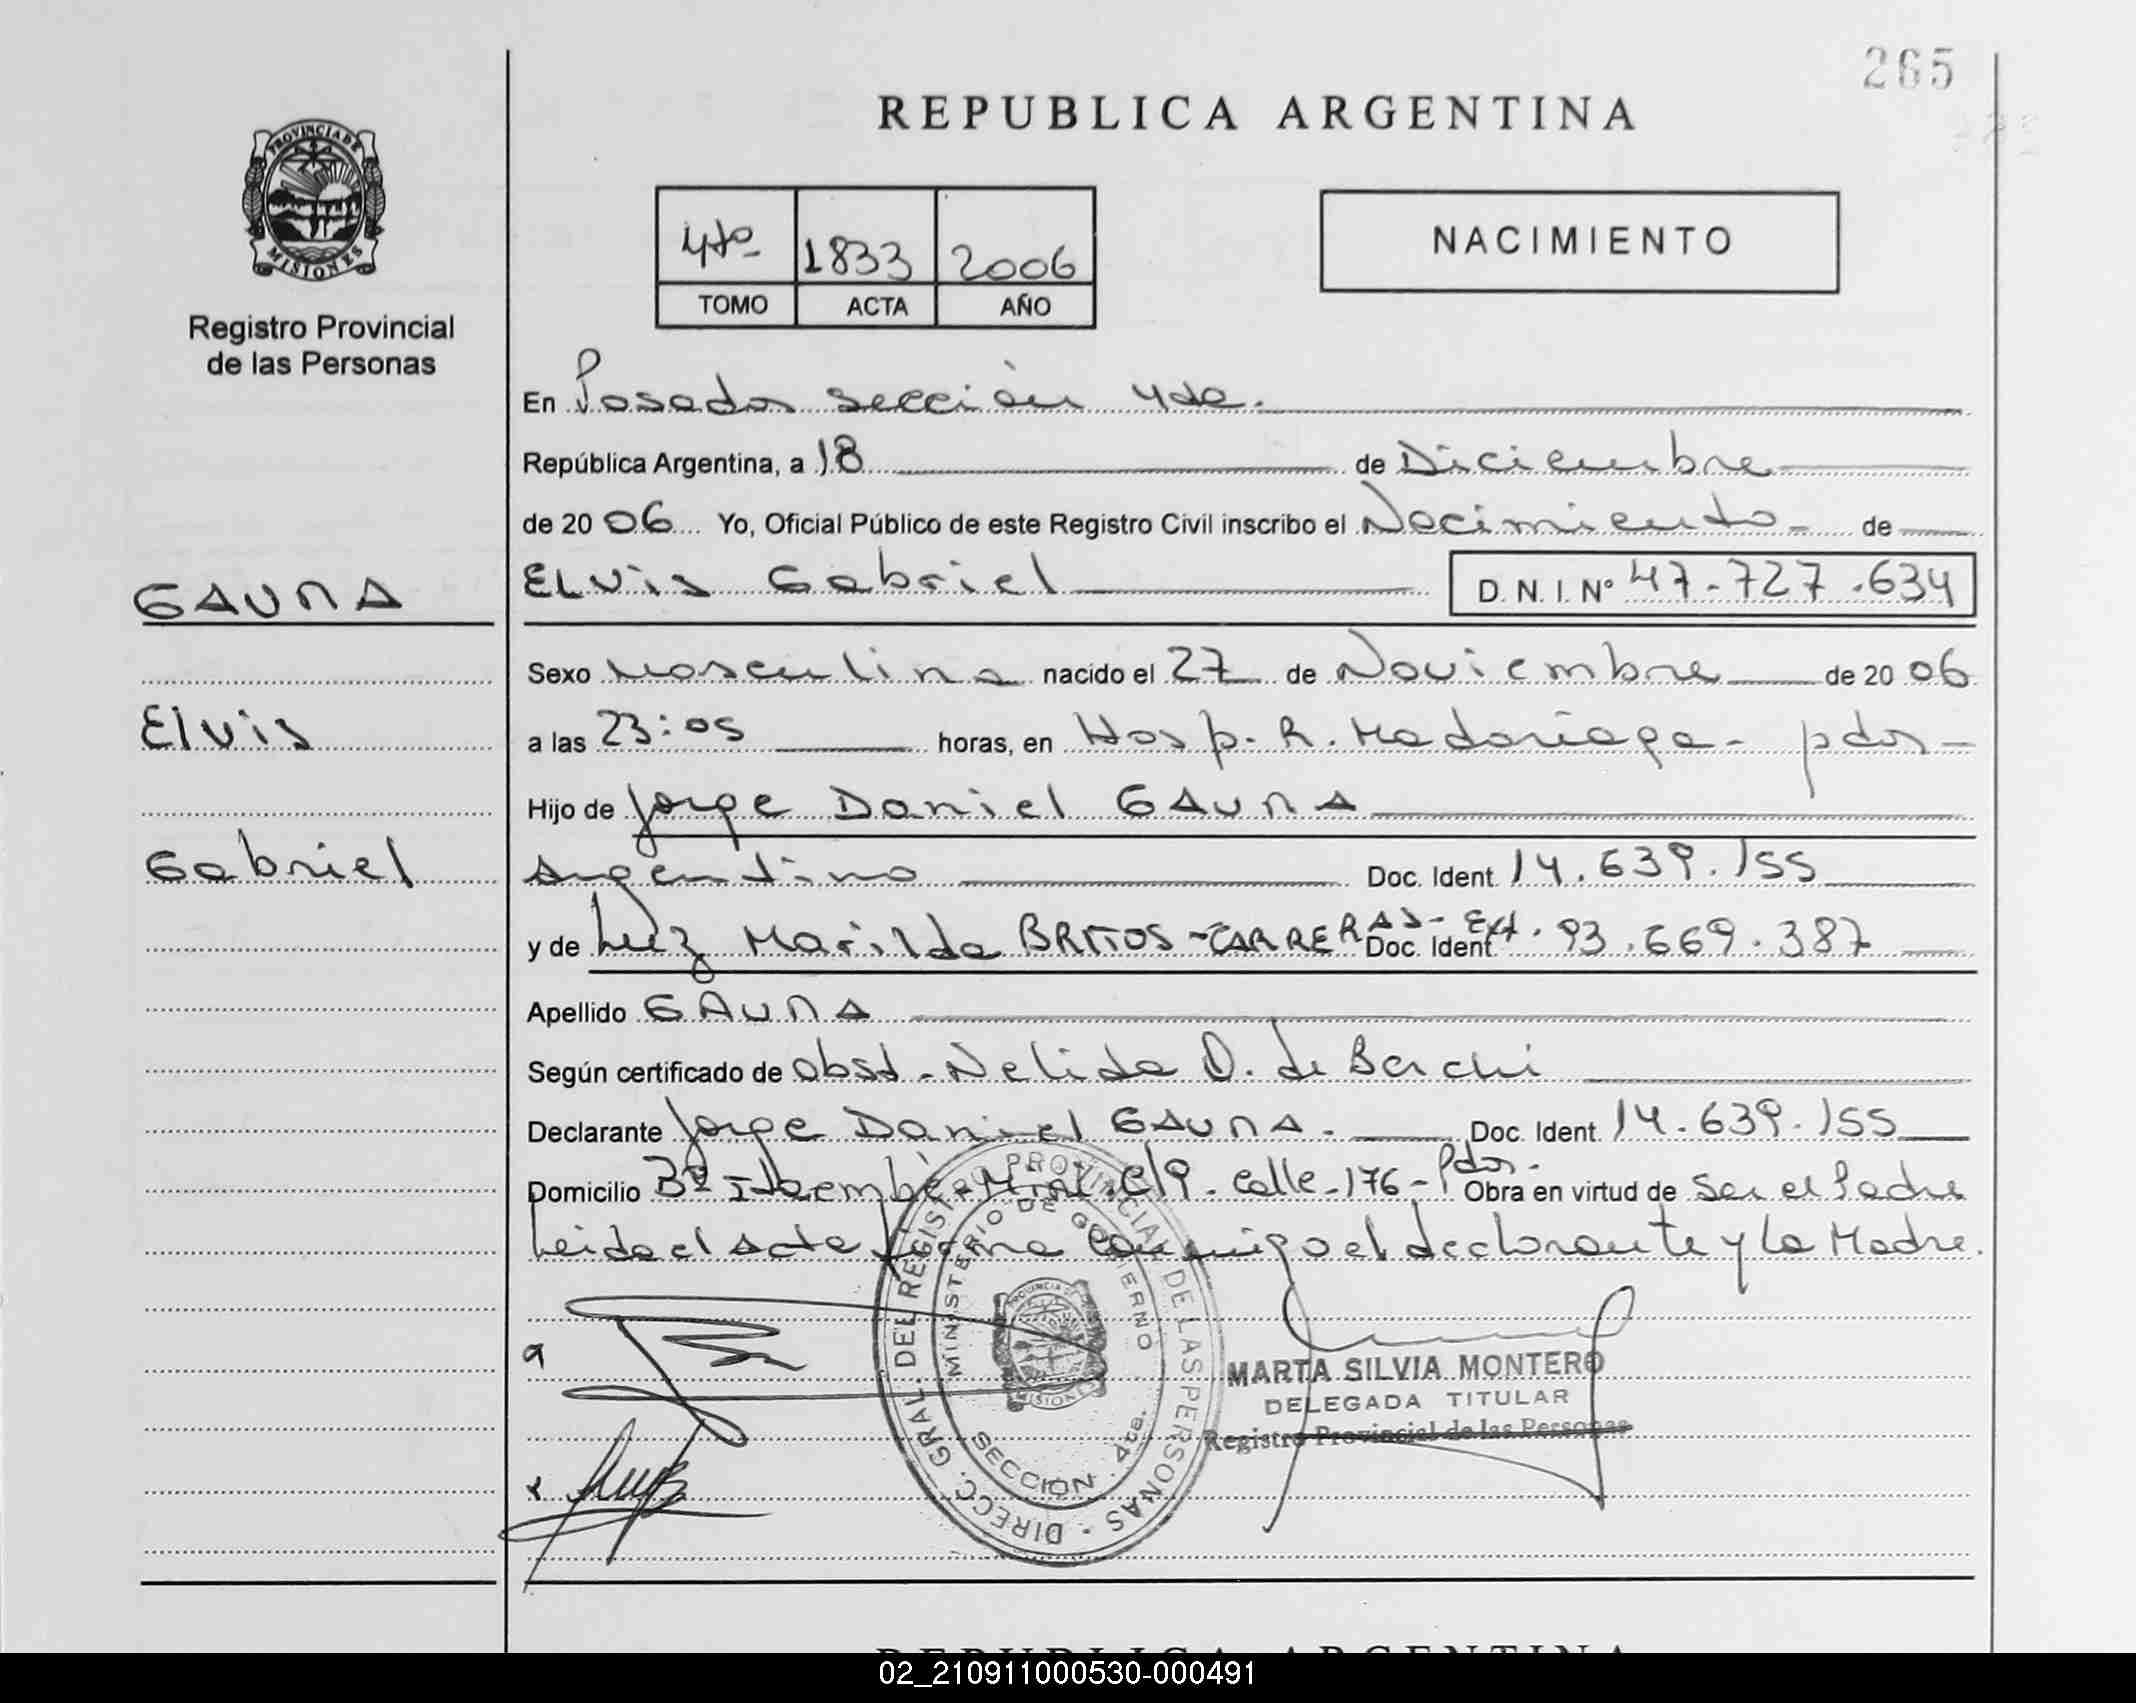 265
REPUBLICA ARGENTINA
PROVINCIA DE
MISIONES
Registro Provincial
de las Personas
4to 1833 2006
TOMO ACTA AÑO
NACIMIENTO
En Posadas sección 4ta.
República Argentina, a 18 de Diciembre
de 20 06 Yo, Oficial Público de este Registro Civil inscribo el Nacimiento de
GAUNA
Elvis
Gabriel
ELvis Gabriel D.N.I. Nº 47.727.634
Sexo Masculino nacido el 27 de Noviembre de 20 06
a las 23:05 horas, en Hosp. R. Madariaga - pdas -
Hijo de Jorge Daniel GAUNA
Argentino Doc. Ident. 14.639.155
y de Luz Marilda BRITOS - CARRERAS - Ext. Doc. Ident. 93.669.387
Apellido GAUNA
Según certificado de obst. Nelida O. de Berchi
Declarante Jorge Daniel GAUNA. Doc. Ident. 14.639.155
Domicilio Bº Itaembé - Miní. C/9. Calle - 176 - Pdas. Obra en virtud de ser el Padre
Leida el acta firma conmigo el declarante y la Madre.
DIRECC. GRAL. DEL REGISTRO PROVINCIAL DE LAS PERSONAS
MINISTERIO DE GOBIERNO
SECCION 4ta.
MARTA SILVIA MONTERO
DELEGADA TITULAR
Registro Provincial de las Personas
REPUBLICA ARGENTINA
02_210911000530-000491